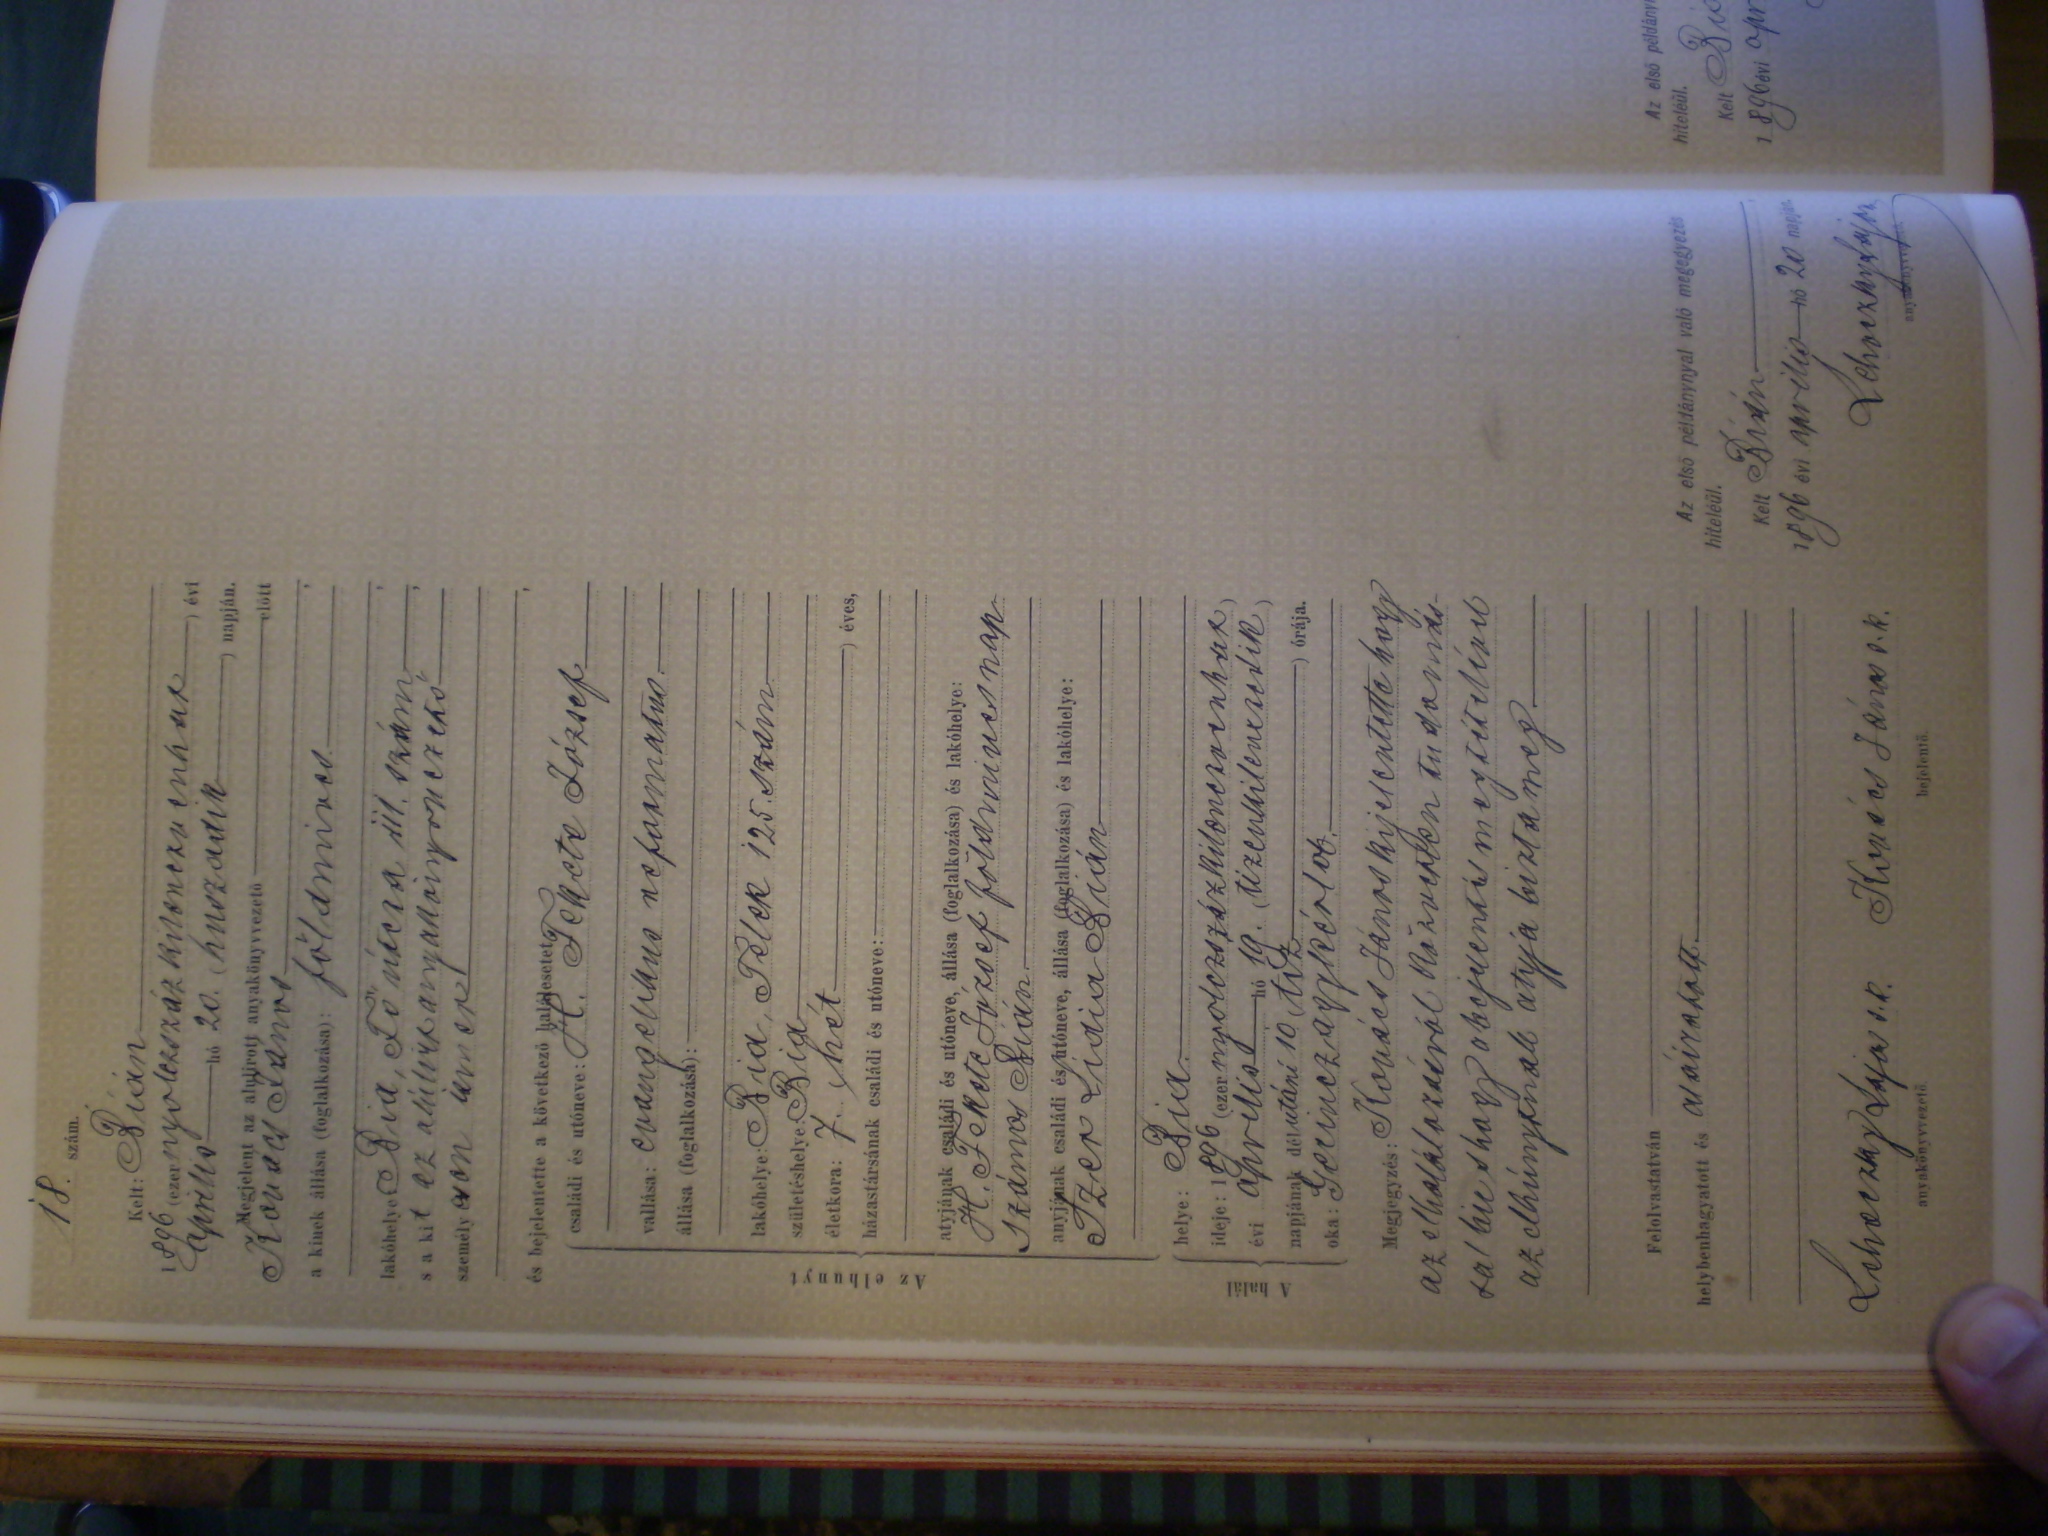 18. szám.
Kelt: Bián
1896 (ezer nyolczszáz kilenczvenhat ) évi
április hó 20. (huszadik ) napján.
Megjelent az alulirott anyakönyvvezető előtt
Kovács János
a kinek állása (foglalkozása): földmives ,
lakóhelye: Bia, Fő utcza szám ,
s a kit az alulirt anyakönyvvezető
személyesen ismer ,
és bejelentette a következő halálesetet,
Az elhunyt
családi és utóneve: H. Fekete József
vallása: evangelikus reformatus
állása (foglalkozása):
lakóhelye: Bia, Telek 125. szám
születéshelye: Bia
életkora: 7. (hét ) éves,
házastársának családi és utóneve:
atyjának családi és utóneve, állása (foglalkozása) és lakóhelye:
H. Fekete József földmives nap
számos Bián
anyjának családi és utóneve, állása (foglalkozása) és lakóhelye:
Lidia Bián
A halál
helye: Bia
ideje: 1896 (ezer nyolczszázkilenczvenhat )
évi április hó 19. (tizenkilenczedik )
napjának délutáni 10 (tíz ) órája.
oka: Gerinczagykérlob.
Megjegyzés: Kovács János kijelentette hogy
az elhalálozásról közvetlen tudomás-
sal bir s hogy a bejelentés megtételével
az elhunytnak atyja bizta meg
Felolvastatván
helybenhagyatott és aláiratott.
Lehoczky Lajos s.k. Kovács János s.k.
anyakönyvvezető. bejelentő.
Az első példánynyal való megegyezés
hiteléül.
Kelt Bián
1896 évi április hó 20 napján
Lehoczky Lajos
anyakönyvvezető.
Az első példányn
hiteléül.
Kelt
1896 évi